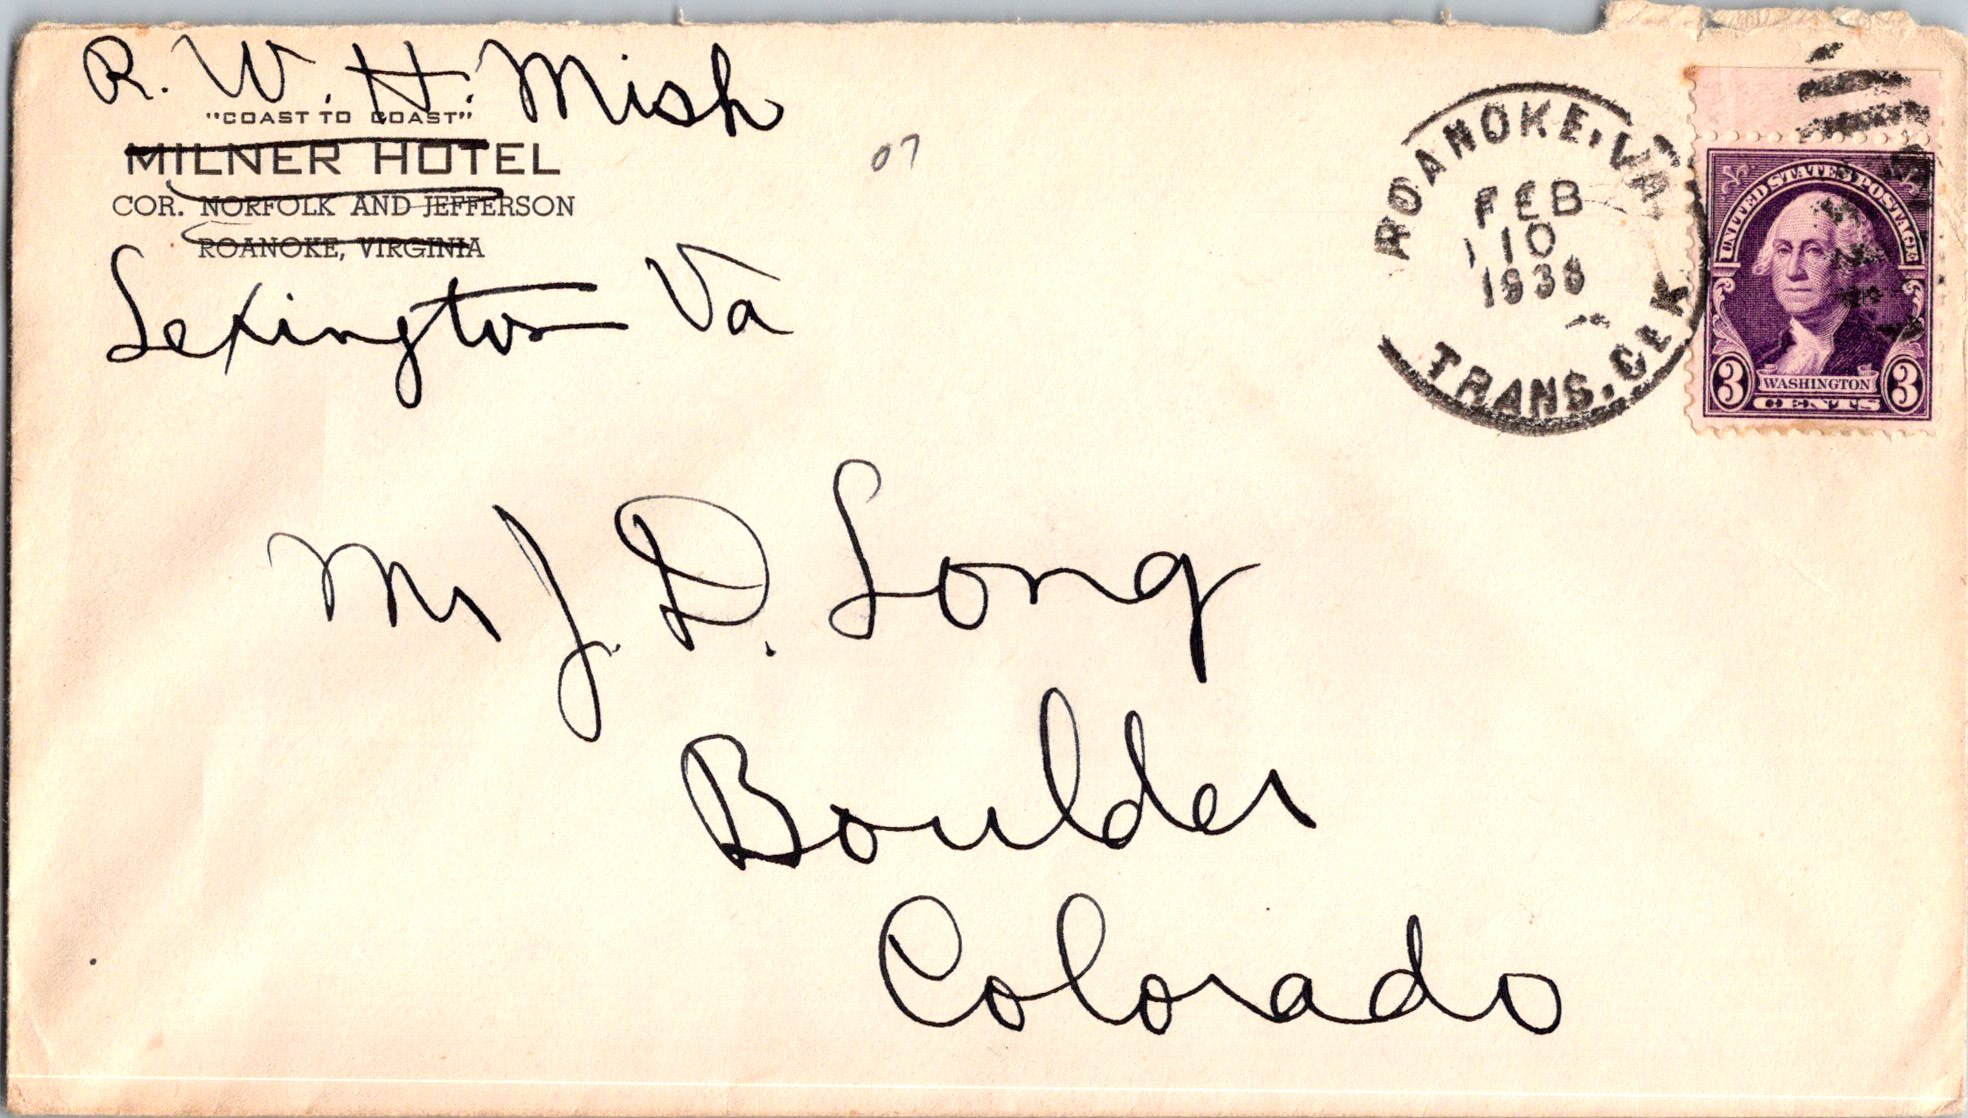 R. W. H. Mish
"COAST TO COAST"
MILNER HOTEL
COR. NORFOLK AND JEFFERSON
ROANOKE, VIRGINIA
Lexington Va
07
ROANOKE, VA.
FEB
10
1938
TRANS. CLK
UNITED STATES POSTAGE
3 WASHINGTON 3
CENTS
Mr J. D. Long
Boulder
Colorado